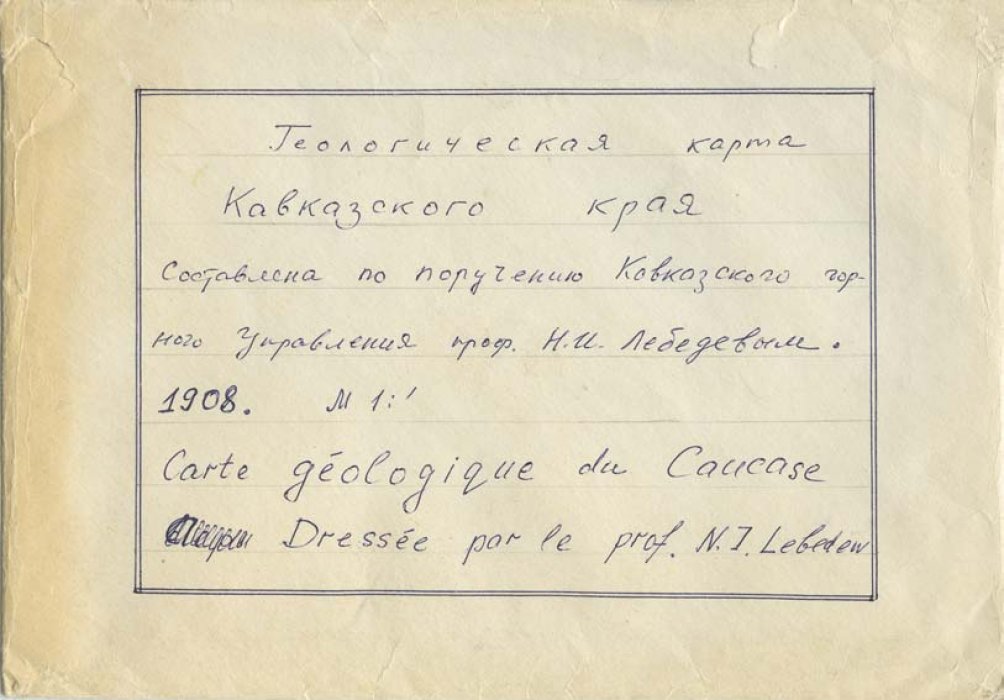 Геологическая карта
Кавказского края
Составлена по поручению Кавказского гор-
ного Управления проф. Н.И. Лебедевым.
1908. М 1:'
Carte géologique du Caucase
Dressée par le prof. N.I. Lebedew